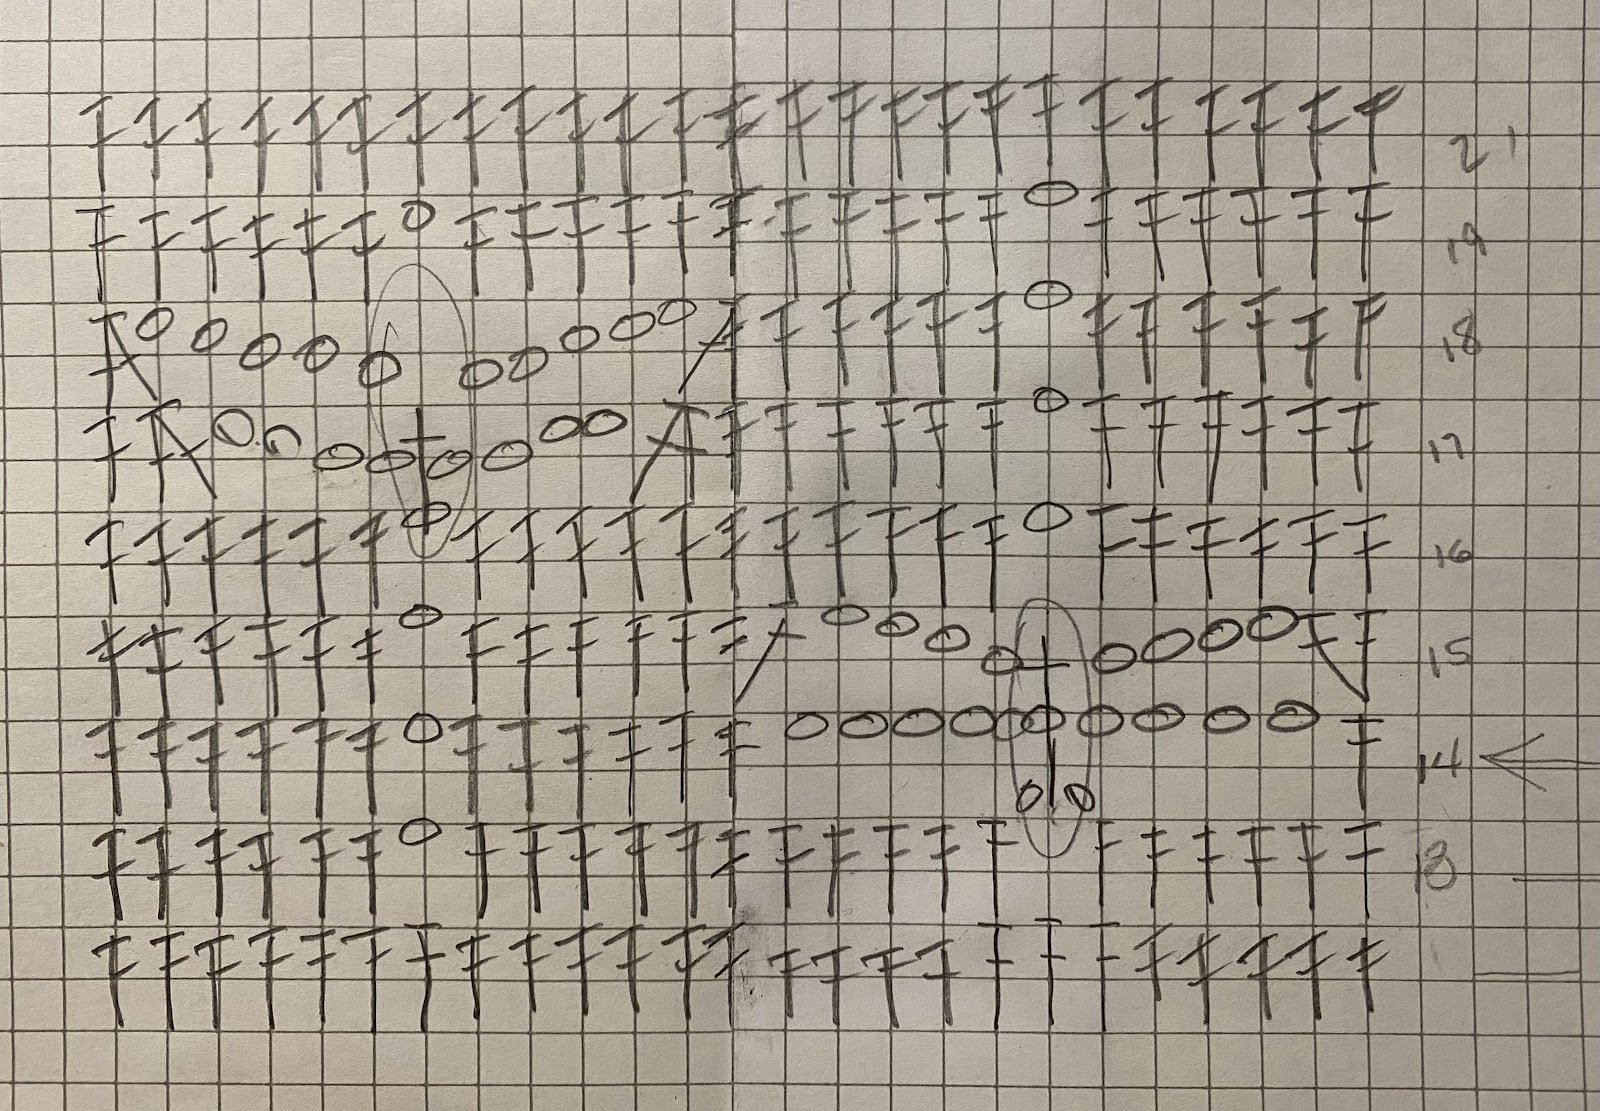 21
19
18
17
16
15
14
13